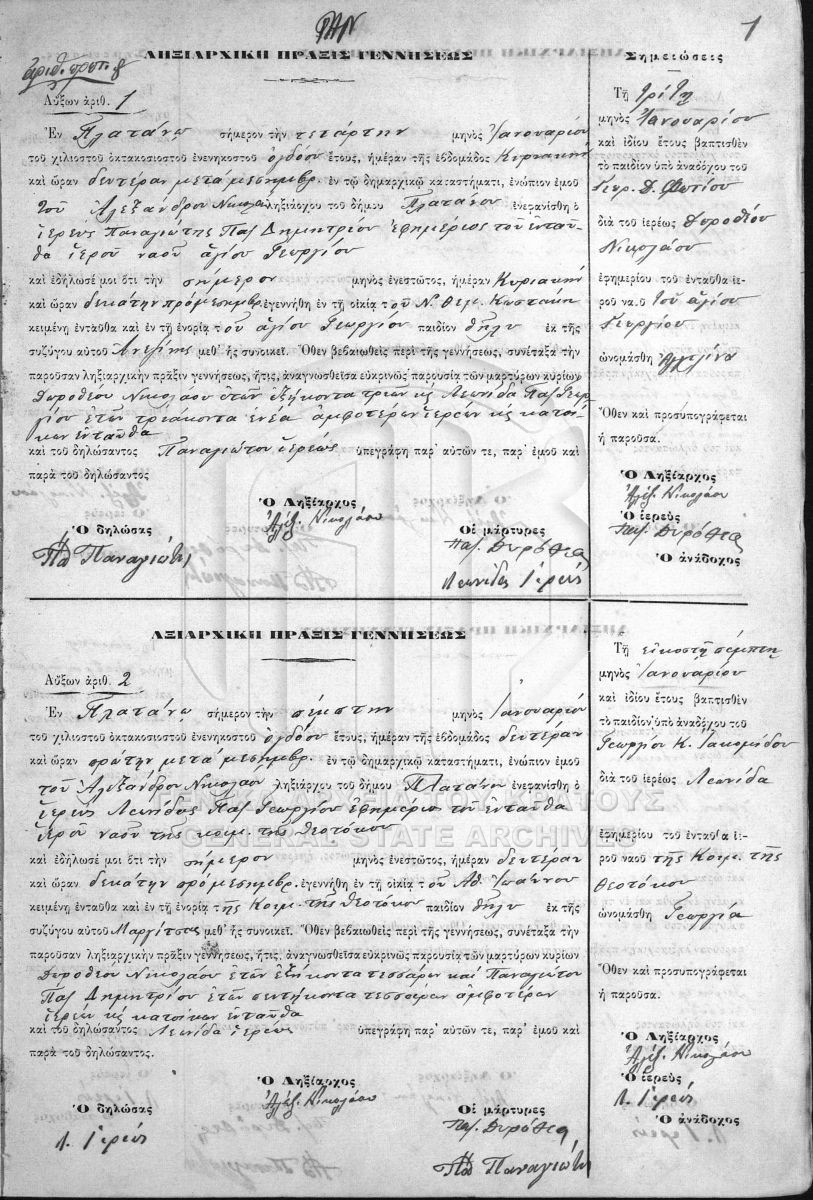 1
ΛΗΞΙΑΡΧΙΚΗ ΠΡΑΞΙΣ ΓΕΝΝΗΣΕΩΣ
Αὔξων ἀριθ. 1
Ἐν Πλατάνῳ σήμερον τὴν τετάρτην μηνὸς Ἰανουαρίου
τοῦ χιλιοστοῦ ὀκτακοσιοστοῦ ἐνενηκοστοῦ ὀγδόου ἔτους, ἡμέραν τῆς ἑβδομάδος Κυριακὴν
καὶ ὥραν δευτέραν μετὰ μεσημβρ. ἐν τῷ δημαρχικῷ καταστήματι, ἐνώπιον ἐμοῦ
τοῦ Ἀλεξάνδρου Νικολάου ληξιάρχου τοῦ δήμου Πλατάνου ἐνεφανίσθη ὁ
ἱερεὺς Παναγιώτης Παπ Δημητρίου ἐφημέριος τοῦ ἐνταῦ-
θα ἱεροῦ ναοῦ ἁγίου Γεωργίου
καὶ ἐδήλωσέ μοι ὅτι τὴν σήμερον μηνὸς ἐνεστῶτος, ἡμέραν Κυριακὴν
καὶ ὥραν δεκάτην πρὸ μεσημβρ. ἐγεννήθη ἐν τῇ οἰκίᾳ τοῦ Ν. Θεμ. Κωστάκη
κειμένῃ ἐνταῦθα καὶ ἐν τῇ ἐνορίᾳ τοῦ ἁγίου Γεωργίου παιδίον θῆλυ ἐκ τῆς
συζύγου αὐτοῦ μεθ' ἧς συνοικεῖ. Ὅθεν βεβαιωθεὶς περὶ τῆς γεννήσεως, συνέταξα τὴν
παροῦσαν ληξιαρχικὴν πρᾶξιν γεννήσεως, ἥτις, ἀναγνωσθεῖσα εὐκρινῶς παρουσίᾳ τῶν μαρτύρων κυρίων
Δυροθέου Νικολάου ἐτῶν ἑξήκοντα τριῶν κς Λεωνίδα Παπ Γεωρ-
γίου ἐτῶν τριάκοντα ἐννέα ἀμφοτέρων ἱερέων κς κατοί-
κων ἐνταῦθα
καὶ τοῦ δηλώσαντος Παναγιώτου ἱερέως ὑπεγράφη παρ' αὐτῶν τε, παρ' ἐμοῦ καὶ
παρὰ τοῦ δηλώσαντος
Ὁ Ληξίαρχος
Ἀλέξ. Νικολάου
Ὁ δηλώσας
Οἱ μάρτυρες
Παναγιώτης
Παπ. Δυρόθεος
Λεωνίδας Ἱερεύς
Σημειώσεις
Τῇ τρίτῃ
μηνὸς Ἰανουαρίου
καὶ ἰδίου ἔτους βαπτισθὲν
τὸ παιδίον ὑπὸ ἀναδόχου τοῦ
Γεωρ. Δ. Φωτίου
διὰ τοῦ ἱερέως Δυροθέου
Νικολάου
ἐφημερίου τοῦ ἐνταῦθα ἱε-
ροῦ ναοῦ τοῦ ἁγίου
Γεωργίου
ὠνομάσθη Ἀγγελίνα
Ὅθεν καὶ προσυπογράφεται
ἡ παροῦσα.
Ὁ Ληξίαρχος
Ἀλέξ. Νικολάου
Ὁ ἱερεὺς
Παπ. Δυρόθεος
Ὁ ἀνάδοχος
ΛΞΙΑΡΧΙΚΗ ΠΡΑΞΙΣ ΓΕΝΝΗΣΕΩΣ
Αὔξων ἀριθ. 2
Ἐν Πλατάνῳ σήμερον τὴν πέμπτην μηνὸς Ἰανουαρίου
τοῦ χιλιοστοῦ ὀκτακοσιοστοῦ ἐνενηκοστοῦ ὀγδόου ἔτους, ἡμέραν τῆς ἑβδομάδος δευτέραν
καὶ ὥραν πρώτην μετὰ μεσημβρ. ἐν τῷ δημαρχικῷ καταστήματι, ἐνώπιον ἐμοῦ
τοῦ Ἀλεξάνδρου Νικολάου ληξιάρχου τοῦ δήμου Πλατάνου ἐνεφανίσθη ὁ
ἱερεὺς Λεωνίδας Παπ Γεωργίου ἐφημέριος τοῦ ἐνταῦθα
ἱεροῦ ναοῦ τῆς κοιμ. τῆς Θεοτόκου
καὶ ἐδήλωσέ μοι ὅτι τὴν σήμερον μηνὸς ἐνεστῶτος, ἡμέραν δευτέραν
καὶ ὥραν δεκάτην πρὸ μεσημβρ. ἐγεννήθη ἐν τῇ οἰκίᾳ τοῦ Ἀθ. Ἰωάννου
κειμένῃ ἐνταῦθα καὶ ἐν τῇ ἐνορίᾳ τῆς Κοιμ. τῆς Θεοτόκου παιδίον θῆλυ ἐκ τῆς
συζύγου αὐτοῦ Μαργίτσας μεθ' ἧς συνοικεῖ. Ὅθεν βεβαιωθεὶς περὶ τῆς γεννήσεως, συνέταξα τὴν
παροῦσαν ληξιαρχικὴν πρᾶξιν γεννήσεως, ἥτις, ἀναγνωσθεῖσα εὐκρινῶς παρουσίᾳ τῶν μαρτύρων κυρίων
Δυροθέου Νικολάου ἐτῶν ἑξήκοντα τεσσάρων καὶ Παναγιώτου
Παπ Δημητρίου ἐτῶν πεντήκοντα τεσσάρων ἀμφοτέρων
ἱερέων κς κατοίκων ἐνταῦθα
καὶ τοῦ δηλώσαντος Λεωνίδα ἱερέως ὑπεγράφη παρ' αὐτῶν τε, παρ' ἐμοῦ καὶ
παρὰ τοῦ δηλώσαντος.
Ὁ Ληξίαρχος
Ἀλέξ. Νικολάου
Ὁ δηλώσας
Οἱ μάρτυρες
Λ. Ἱερεύς
Παπ. Δυρόθεος
Παναγιώτης
Τῇ εἰκοστῇ πέμπτῃ
μηνὸς Ἰανουαρίου
καὶ ἰδίου ἔτους βαπτισθὲν
τὸ παιδίον ὑπὸ ἀναδόχου τοῦ
Γεωργίου Κ. Ἰακομίδου
διὰ τοῦ ἱερέως Λεωνίδα
ἐφημερίου τοῦ ἐνταῦθα ἱε-
ροῦ ναοῦ τῆς Κοιμ. τῆς
Θεοτόκου
ὠνομάσθη Γεωργία
Ὅθεν καὶ προσυπογράφεται
ἡ παροῦσα.
Ὁ Ληξίαρχος
Ἀλέξ. Νικολάου
Ὁ ἱερεὺς
Λ. Ἱερεύς
Ὁ ἀνάδοχος
ΓΕΝΙΚΑ ΑΡΧΕΙΑ ΤΟΥ ΚΡΑΤΟΥΣ
GENERAL STATE ARCHIVES